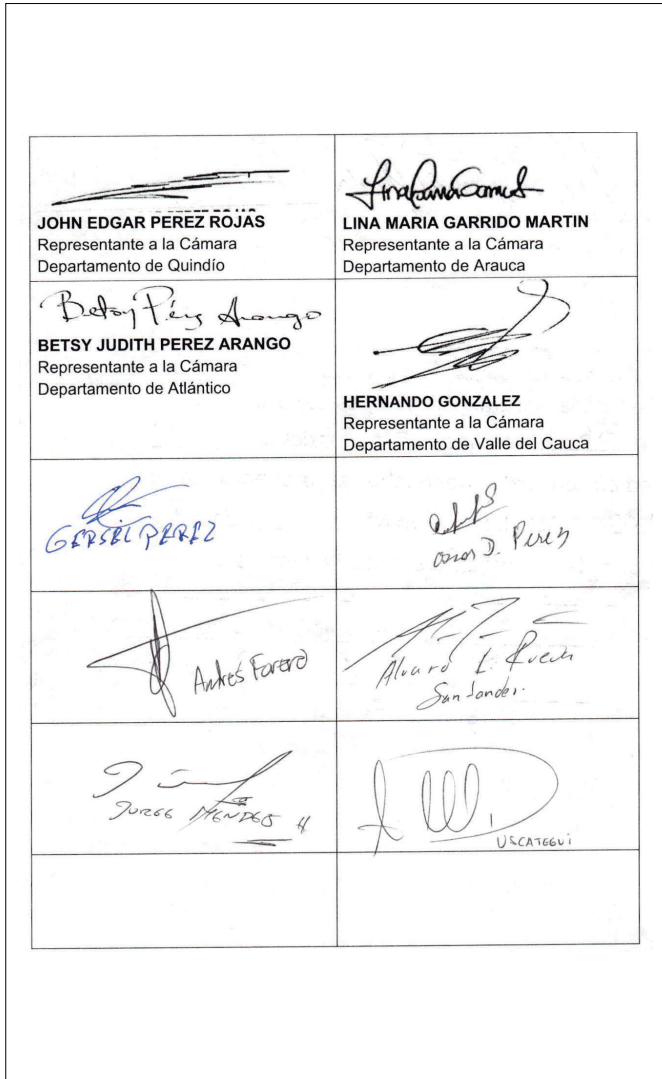 JOHN EDGAR PEREZ ROJAS
Representante a la Cámara
Departamento de Quindío
LINA MARIA GARRIDO MARTIN
Representante a la Cámara
Departamento de Arauca
Betsy Pérez Arango
BETSY JUDITH PEREZ ARANGO
Representante a la Cámara
Departamento de Atlántico
HERNANDO GONZALEZ
Representante a la Cámara
Departamento de Valle del Cauca
GERSEL PEREZ
D. Perez
Andres Forero
Alvaro L. Rueda
Santander.
JORGE MENDEZ H
USCATEGUI